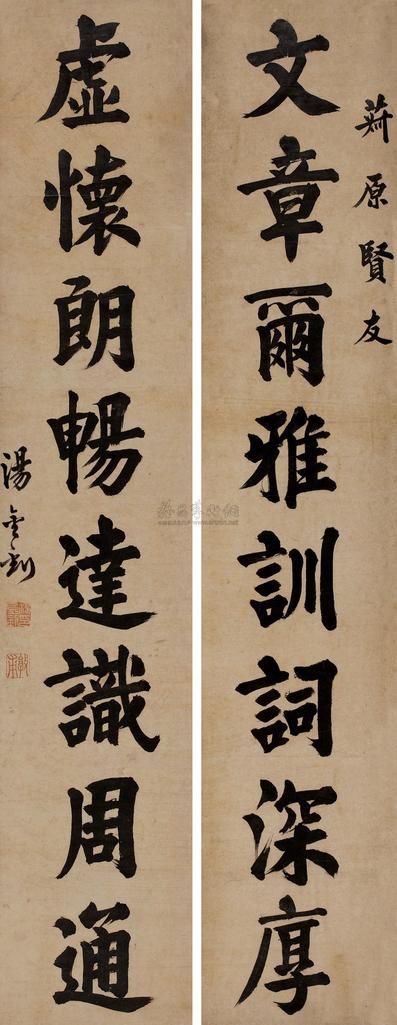 蓱原賢友
文章爾雅訓詞深厚
虛懷朗暢達識周通
湯金釗